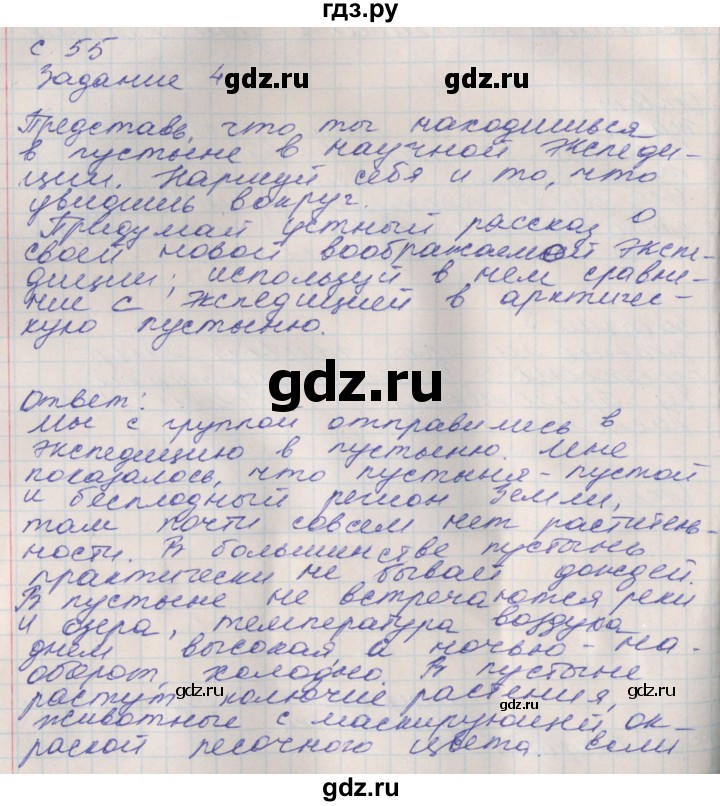 гдз.ру
с 55
Задание 4
gdz.ru
gdz.ru
Представь, что ты находишься
в пустыне в научной экспеди-
ции. Нарисуй себя и то, что
увидишь вокруг.
Придумай устный рассказ о
своей новой воображаемой экспе-
диции; используй в нем сравне-
ние с экспедицией в арктичес-
кую пустыню.
gdz.ru
Ответ:
Мы с группой отправились в
экспедицию в пустыню. Мне
показалось, что пустыня - пустой
и бесплодный регион Земли,
там почти совсем нет раститель-
ности. В большинстве пустынь
практически не бывает дождей.
В пустыне не встречаются реки
и озера, температура воздуха
днем высокая а ночью - на-
оборот, холодно. В пустыне
gdz.ru
gdz.ru
растут колючие растения,
gdz.ru
животные с маскирующей ок-
раской песочного цвета. Если
gdz.ru
gdz.ru